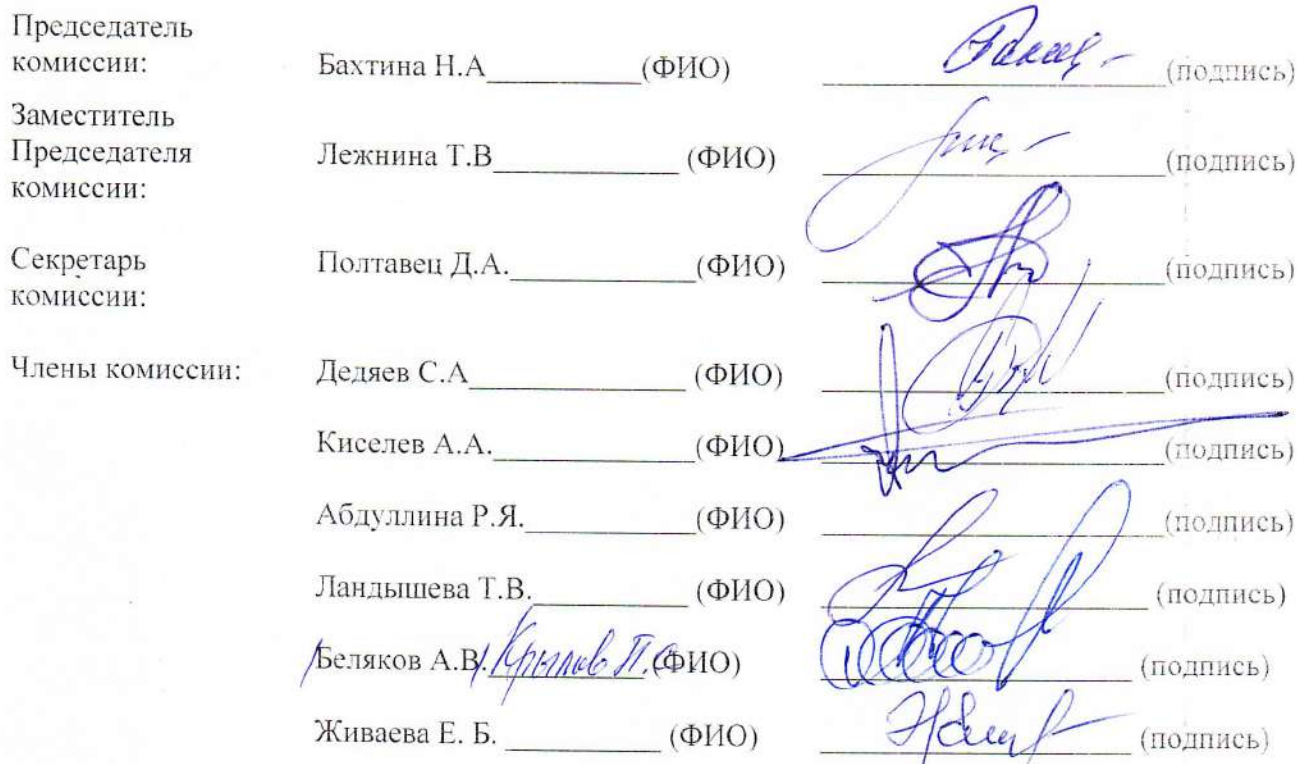 Председатель
комиссии: Бахтина Н.А__________(ФИО) ____________________(подпись)
Заместитель
Председателя Лежнина Т.В____________ (ФИО) ____________________(подпись)
комиссии:
Секретарь Полтавец Д.А.____________(ФИО) ____________________(подпись)
комиссии:
Члены комиссии: Дедяев С.А______________(ФИО) ____________________(подпись)
Киселев А.А.____________(ФИО) ____________________(подпись)
Абдуллина Р.Я.___________(ФИО) ____________________(подпись)
Ландышева Т.В.__________(ФИО) ____________________(подпись)
Беляков А.В. Крылов П.О (ФИО) ____________________(подпись)
Живаева Е. Б. __________ (ФИО) ____________________(подпись)